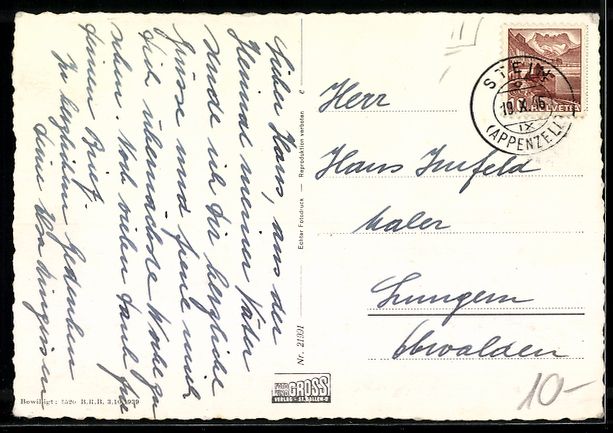 Lieber Hans, aus der
Heimat meiner Väter
sende ich dir herzliche
Grüsse und freue mich
dich übernächste Woche zu
sehen. Noch vielen Dank für
deinen Brief.
In herzlichem Gedenken
dein
Echter Fotodruck — Reproduktion verboten
Nr. 21991
Bewilligt: 1520 B.R.B. 3.10.1939
FOTO GROSS
VERLAG - ST. GALLEN
STEIN
19.X.46
IX
(APPENZELL)
HELVETIA
Herr
Hans Imfeld
Maler
Lungern
Obwalden
10-